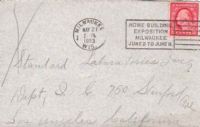 MILWAUKEE
MAY 27
1923
WIS.
HOME BUILDING
EXPOSITION
MILWAUKEE
JUNE 2 TO JUNE 9
Standard Laboratories Inc
Dept. S. C 760
Los Angeles California